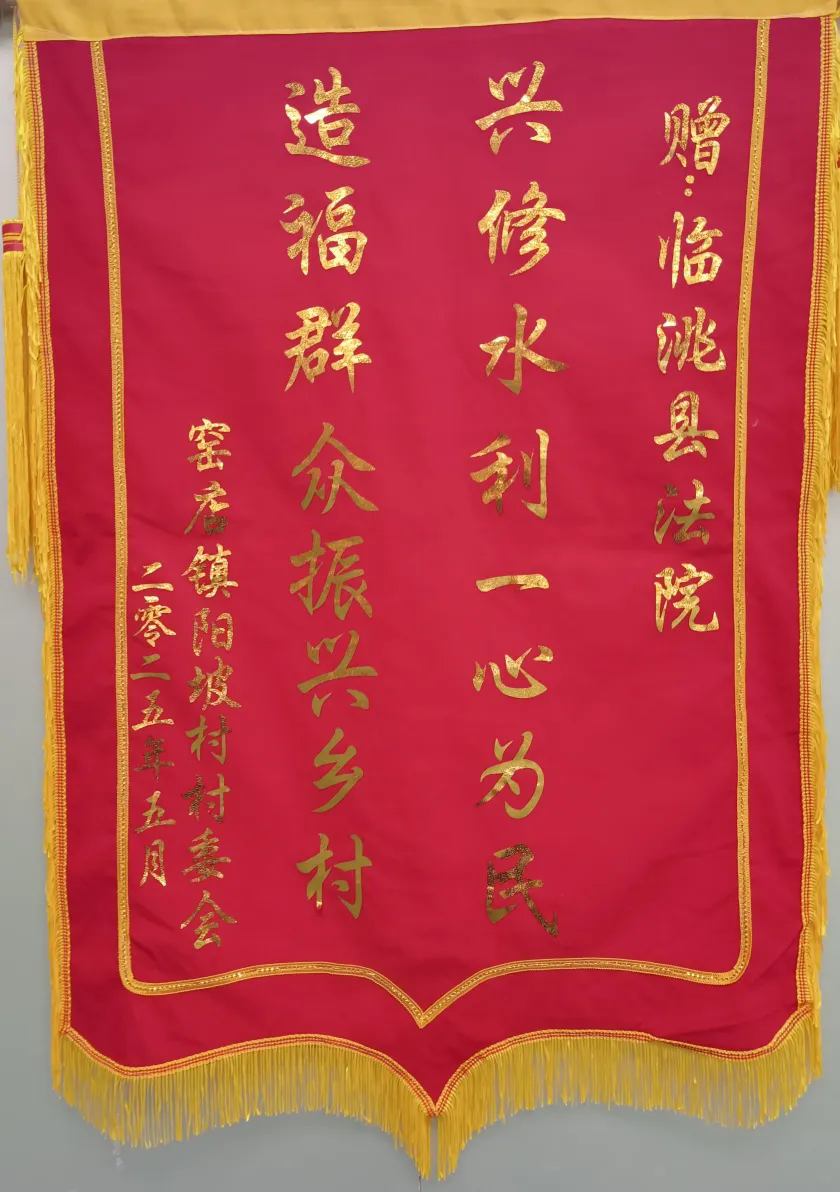 赠:临洮县法院
兴修水利一心为民
造福群众振兴乡村
窑店镇阳坡村村委会
二零二五年五月